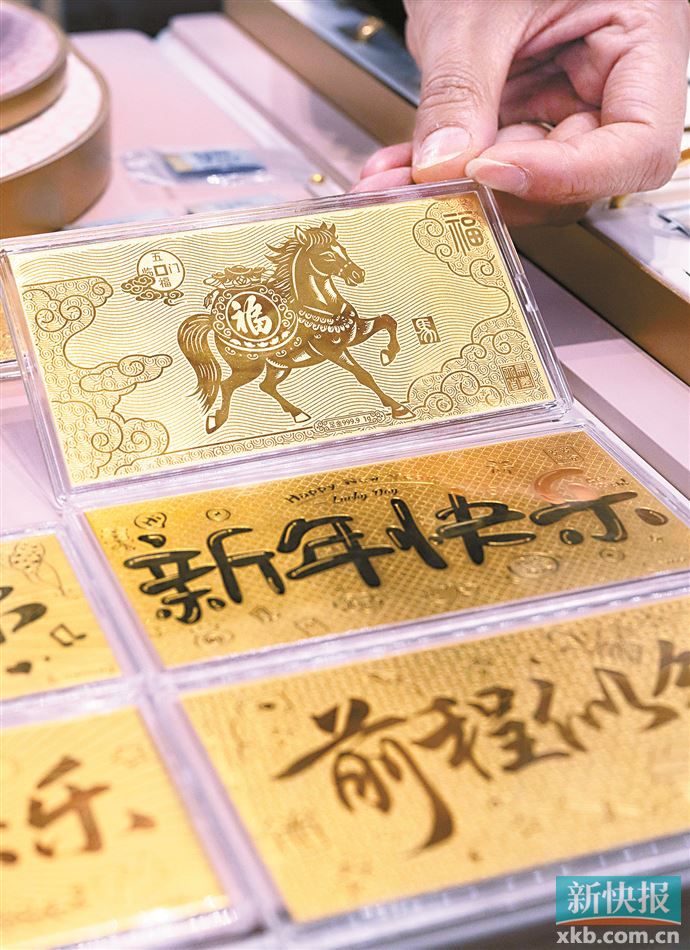 福
五
临门
福
福
足金999.9 1g
Happy New
Lucky Day
新年快乐
前程似
乐
新快报
xkb.com.cn